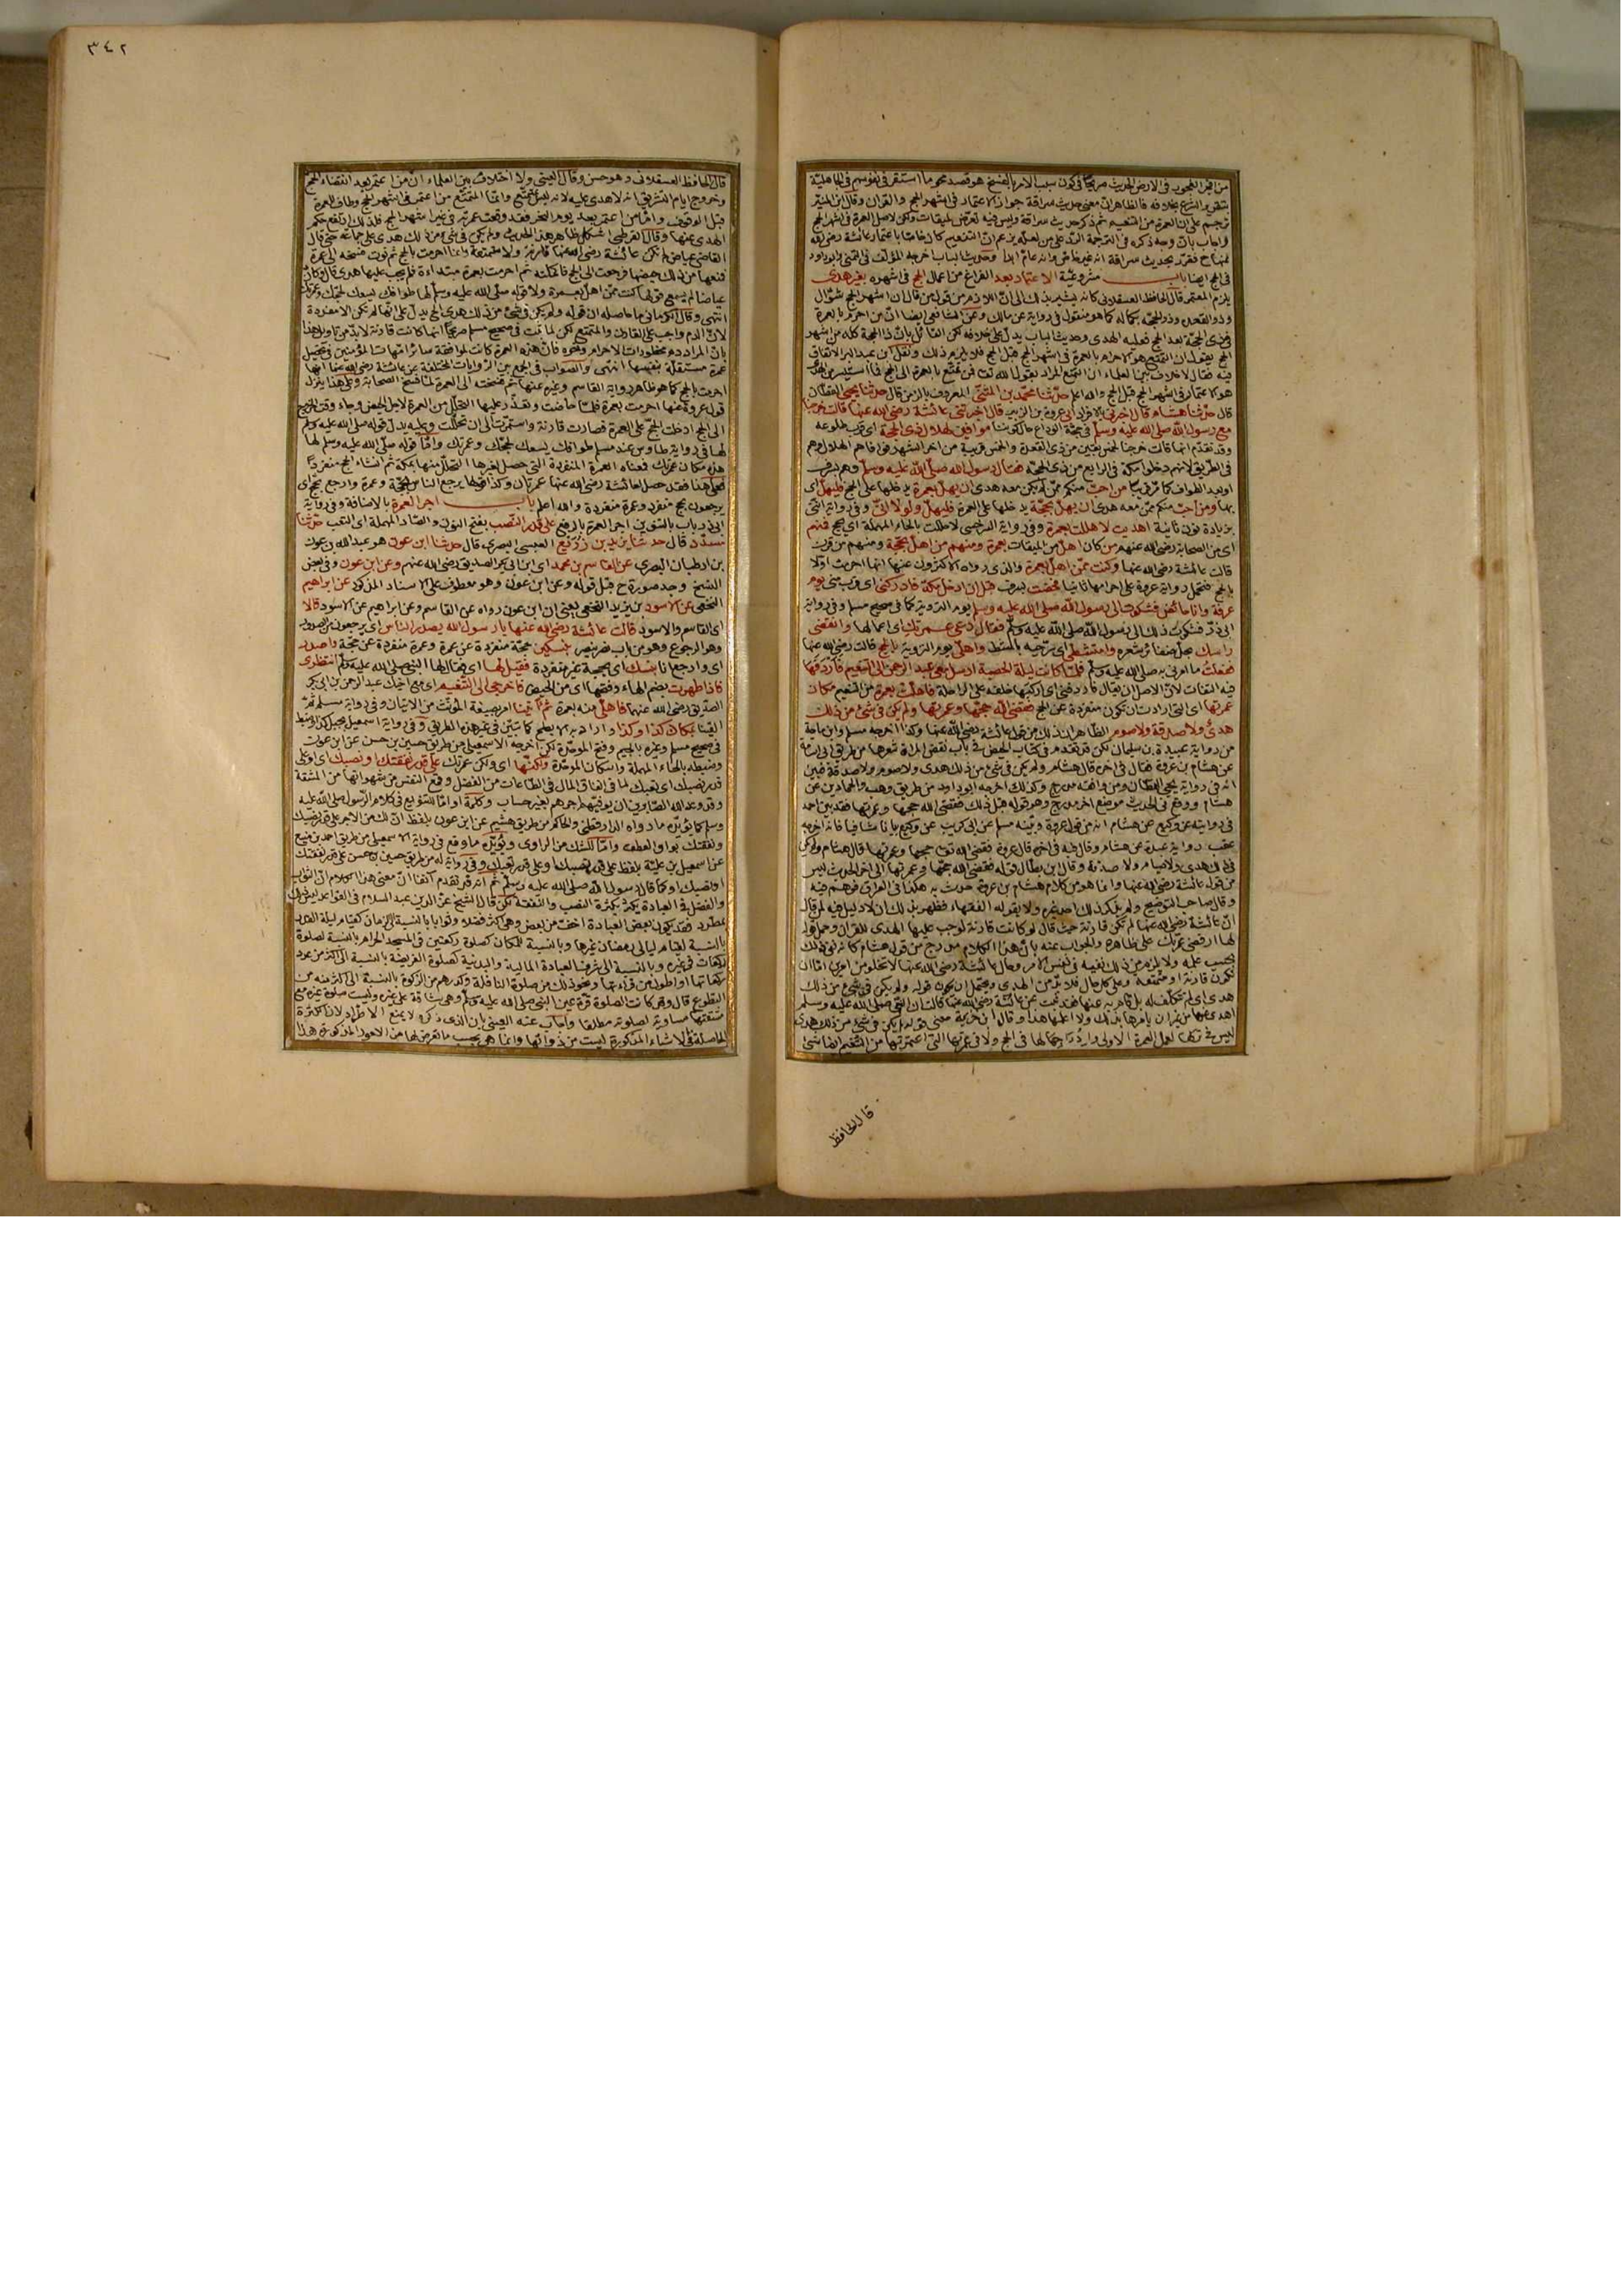 من افجر الفجور في الارض الحديث صريحًا في كون سبب الامر بالفسخ هو قصد محو ما استقر في نفوسهم في الجاهلية
بتقرير الشرع بخلافه فالظاهر ان معنى حديث سراقة جواز الاعتمار في اشهر الحج والقران وقال ابن المنير
ترجم على ان العمرة من التنعيم ثم ذكر حديث سراقة وليس فيه تعرض لميقات ولكن لاصل العمرة في اشهر الحج
واجاب بان وجه ذكره في الترجمة الرد على من لعله يزعم ان التنعيم كان خاصًا باعتمار عائشة رضي الله
عنها فقرر بحديث سراقة انه غير خاص وانه عام ابدًا وحديث الباب اخرجه المؤلف في التمني وابو داود
في الحج ايضا باب مشروعية الاعتمار بعد الفراغ من اعمال الحج في اشهره بغير هدي
يلزم المعتمر قال الحافظ العسقلاني كانه يشير بذلك الى ان اللازم من قول من قال ان اشهر الحج شوال
وذو القعدة وذو الحجة بكماله كما هو منقول في رواية عن مالك وعن الشافعي ايضا ان من احرم بالعمرة
في ذي الحجة بعد الحج فعليه الهدي وحديث الباب يدل على خلافه لكن القائل بان ذا الحجة كله من اشهر
الحج يقول ان التمتع هو الاحرام بالعمرة في اشهر الحج قبل الحج فلا يلزمه ذلك ونقل ابن عبد البر الاتفاق
فيه فقال لا خلاف بين العلماء ان التمتع المراد بقول الله تعالى فمن تمتع بالعمرة الى الحج فما استيسر من الهدي
هو الاعتمار في اشهر الحج قبل الحج والله اعلم حدثنا محمد بن المثنى المعروف بالزمن قال حدثنا يحيى القطان
قال حدثنا هشام قال اخبرني بالافراد ابي عروة بن الزبير قال اخبرتني عائشة رضي الله عنها قالت خرجنا
مع رسول الله صلى الله عليه وسلم في حجة الوداع حال كوننا موافين لهلال ذي الحجة اي قرب طلوعه
وقد تقدم انها قالت خرجنا لخمس بقين من ذي القعدة والخمس قريبة من اخر الشهر فوافاهم الهلال وهم
في الطريق لانهم دخلوا مكة في الرابع من ذي الحجة فقال رسول الله صلى الله عليه وسلم وهم بسرف
او بعد الطواف كما مر قريبًا من احب منكم ممن لم يكن معه هدي ان يهل بعمرة يدخلها على الحج فليهل اي
بها ومن احب منكم ممن معه هدي ان يهل بحجة يدخلها على العمرة فليهل ولولا اني وفي رواية انني
بزيادة نون ثانية اهديت لاهللت بعمرة وفي رواية السرخسي لاحللت بالحاء المهملة اي بحج فمنهم
اي من الصحابة رضي الله عنهم من كان اهل من الميقات بعمرة ومنهم من اهل بحجة ومنهم من قرن
قالت عائشة رضي الله عنها وكنت ممن اهل بعمرة والذي رواه الاكثرون عنها انها احرمت اولًا
بالحج فتحمل رواية عروة على احرامها ثانيا فحضت بسرف قبل ان ادخل مكة فادركني اي قرب مني يوم
عرفة وانا حائض فشكوت الى رسول الله صلى الله عليه وسلم يوم التروية كما في صحيح مسلم وفي رواية
ابي ذر فشكوت ذلك الى رسول الله صلى الله عليه وسلم فقال دعي عمرتك اي اعمالها وانقضي
راسك بحل ضفائر شعره وامتشطي اي سرحيه بالمشط واهلي يوم التروية بالحج قالت رضي الله عنها
ففعلت ما امرني به صلى الله عليه وسلم فلما كانت ليلة الحصبة ارسل معي عبد الرحمن الى التنعيم فاردفها
فيه التفات لان الاصل ان يقال فاردفني اي اركبها خلفه على الراحلة فاهلت بعمرة من التنعيم مكان
عمرتها اي التي ارادت ان تكون منفردة عن الحج فقضى الله حجها وعمرتها ولم يكن في شئ من ذلك
هدي ولا صدقة ولا صوم الظاهر ان ذلك من قول عائشة رضي الله عنها وكذا اخرجه مسلم وابن ماجة
من رواية عبيدة بن سليمان لكن قد تقدم في كتاب الحيض في باب نقض المراة شعرها من طريق ابي اسامة
عن هشام بن عروة فقال في اخره قال هشام ولم يكن في شئ من ذلك هدي ولا صوم ولا صدقة فتبين
انه في رواية يحيى القطان ومن وافقه مدرج وكذلك اخرجه ابو داود من طريق وهيب والحمادين عن
هشام ووقع في الحديث موضع اخر مدرج وهو قوله قبل ذلك فقضى الله حجها وعمرتها فقد بين احمد
في روايته عن وكيع عن هشام انه من قول عروة وبينه مسلم عن ابي كريب عن وكيع بيانا شافيا فانه اخرجه
عقب رواية عبدة عن هشام وقال فيه في اخره قال عروة فقضى الله تعالى حجها وعمرتها قال هشام ولم يكن
في ذلك هدي ولا صيام ولا صدقة وقال ابن بطال قوله فقضى الله حجها وعمرتها الى اخر الحديث ليس
من قول عائشة رضي الله عنها وانما هو من كلام هشام بن عروة حدث به هكذا في العراق فوهم فيه
وقال صاحب التوضيح ولم يذكر ذلك احد غيره ولا يقوله الفقهاء فظهر بذلك ان لا دليل فيه لمن قال
ان عائشة رضي الله عنها لم تكن قارنة حيث قال لو كانت قارنة لوجب عليها الهدي للقران وحمل قوله
لها ارفضي عمرتك على ظاهره والجواب عنه بان هذا الكلام مدرج من قول هشام كانه نفى ذلك
بحسب علمه ولا يلزم من ذلك نفيه في نفس الامر وحال عائشة رضي الله عنها لا تخلو من امرين اما ان
تكون قارنة او متمتعة وعلى كل حال فلا بد من الهدي ويحتمل ان يكون قوله ولم يكن في شئ من ذلك
هدي اي لم تتكلف له بل قام به عنها فقد ثبت عن عائشة رضي الله عنها قالت ان النبي صلى الله عليه وسلم
اهدى عنها من غير ان يامرها بذلك ولا اعلمها هذا وقال ابن خزيمة معنى قوله لم يكن في شئ من ذلك هدي
ليس في تركها لعمل العمرة الاولى وادراجها لها في الحج ولا في عمرتها التي اعتمرتها من التنعيم ايضا شئ
قال الحافظ
٣٤٢
قال الحافظ العسقلاني وهو حسن وقال العيني ولا اختلاف بين العلماء ان من اعتمر بعد انقضاء الحج
وخروج ايام التشريق انه لا هدي عليه لانه ليس بمتمتع وانما المتمتع من اعتمر في اشهر الحج وطاف للعمرة
قبل الوقوف واما من اعتمر بعد يوم النحر فقد وقعت عمرته في غير اشهر الحج فلذلك ارتفع حكم
الهدي عنها وقال القرطبي اشكل ظاهر هذا الحديث ولم يكن في شئ من ذلك هدي على جماعة حتى قال
القاضي عياض لم تكن عائشة رضي الله عنها قارنة ولا متمتعة وانما احرمت بالحج ثم نوت فسخه الى عمرة
فمنعها من ذلك حيضها فرجعت الى الحج فاكملته ثم احرمت بعمرة مبتداءة فلم يجب عليها هدي قال وكان
عياضا لم يسمع قولها كنت ممن اهل بعمرة ولا قوله صلى الله عليه وسلم لها طوافك يسعك لحجك وعمرتك
انتهى وقال الكرماني ما حاصله ان قوله ولم يكن في شئ من ذلك هدي الخ يدل على انها لم تكن الا مفردة
لان الدم واجب على القارن والمتمتع لكن لما ثبت في صحيح مسلم صريحًا انها كانت قارنة لا بد من تاويل هذا
بان المراد دم محظورات الاحرام ونحوه فان هذه العمرة كانت لموافقة سائر امهات المؤمنين في تحصيل
عمرة مستقلة بنفسها انتهى والصواب في الجمع بين الروايات المختلفة عن عائشة رضي الله عنها انها
احرمت بالحج كما هو ظاهر رواية القاسم وغيره عنها ثم فسخته الى العمرة لما فسخ الصحابة وعلى هذا يتنزل
قول عروة عنها احرمت بعمرة فلما حاضت وتعذر عليها التحلل من العمرة لاجل الحيض وجاء وقت الخروج
الى الحج ادخلت الحج على العمرة فصارت قارنة واستمرت الى ان تحللت وعليه يدل قوله صلى الله عليه وسلم
لها في رواية طاوس عند مسلم طوافك يسعك لحجك وعمرتك واما قوله صلى الله عليه وسلم لها
هذه مكان عمرتك فمعناه العمرة المنفردة التي حصل لغيرها التحلل منها بمكة ثم انشاء الحج منفردًا
فعلى هذا فقد حصل لعائشة رضي الله عنها عمرتان وكذا قولها يرجع الناس بحجة وعمرة وارجع بحج اي
يرجعون بحج منفرد وعمرة منفردة والله اعلم باب اجر العمرة بالاضافة وفي رواية
ابي ذر باب بالتنوين اجر العمرة بالرفع على قدر النصب بفتح النون والصاد المهملة اي التعب حدثنا
مسدد قال حدثنا يزيد بن زريع العيسي البصري قال حدثنا ابن عون هو عبد الله بن عون
بن ارطبان البصري عن القاسم بن محمد اي ابن ابي بكر الصديق رضي الله عنهم وعن ابن عون وفي بعض
النسخ وجد صورة ح قبل قوله وعن ابن عون وهو معطوف على الاسناد المذكور عن ابراهيم
النخعي عن الاسود بن يزيد النخعي يعني ان ابن عون رواه عن القاسم وعن ابراهيم عن الاسود قالا
اي القاسم والاسود قالت عائشة رضي الله عنها يا رسول الله يصدر الناس اي يرجعون من الصدور
وهو الرجوع وهو من باب نصر ينصر بنسكين حجة منفردة عن عمرة وعمرة منفردة عن حجة واصدر
اي وارجع انا بنسك اي بحجة غير منفردة فقيل لها اي فقال لها النبي صلى الله عليه وسلم انتظري
فاذا طهرت بضم الهاء وفتحها اي من الحيض فاخرجي الى التنعيم اي مع اخيك عبد الرحمن بن ابي بكر
الصديق رضي الله عنهما فاهلي منه بعمرة ثم ائتينا امر بصيغة المؤنث من الاتيان وفي رواية مسلم ثم
القينا بمكان كذا وكذا واراد به الابطح كما تبين في غير هذه الطريق وفي رواية اسمعيل بحبل كذا وضبط
في صحيح مسلم وغيره بالجيم وفتح الموحدة لكن اخرجه الاسمعيلي من طريق حسين بن حسن عن ابن عون
وضبطه بالحاء المهملة واسكان الموحدة ولكنها اي ولكن عمرتك على قدر نفقتك او نصبك اي او على
قدر نصبك اي تعبك لما في انفاق المال في الطاعات من الفضل وقمع النفس عن شهواتها من المشقة
وقد وعد الله الصابرين ان يوفيهم اجرهم بغير حساب وكلمة او اما للتنويع في كلام الرسول صلى الله عليه
وسلم كما يؤيده ما رواه الدارقطني والحاكم من طريق هشيم عن ابن عون بلفظ ان لك من الاجر على قدر نصبك
ونفقتك بواو العطف واما للشك من الراوي ويؤيده ما وقع في رواية الاسمعيلي من طريق احمد بن منيع
عن اسمعيل بن علية بلفظ على قدر نصبك او على قدر تعبك وفي رواية له من طريق حسين بن حسن على قدر نفقتك
او نصبك او كما قال رسول الله صلى الله عليه وسلم ثم انه قد تقدم آنفا ان معنى هذا الكلام ان الثواب
والفضل في العبادة يكثر بكثرة النصب والنفقة لكن قال الشيخ عز الدين عبد السلام في القواعد ليس ذلك
بمطرد فقد يكون بعض العبادة اخف من بعض وهي اكثر فضلا وثوابا بالنسبة الى الزمان كقيام ليلة القدر
بالنسبة لقيام ليالي رمضان غيرها وبالنسبة للمكان كصلوة ركعتين في المسجد الحرام بالنسبة لصلوة
ركعات في غيره وبالنسبة الى شرف العبادة المالية والبدنية كصلوة الفريضة بالنسبة الى اكثر من عدد
ركعاتها او اطول من قراءتها ونحو ذلك من صلوة النافلة وكدرهم من الزكوة بالنسبة الى اكثر منه من
التطوع قال وقد كانت الصلوة قرة عين النبي صلى الله عليه وسلم وهي شاقة على غيره وليست صلوة غيره مع
مشقتها مساوية لصلوته مطلقا واجاب عنه العيني بان الذي ذكره لا يمنع الاطراد لان الكثرة
الحاصلة في الاشياء المذكورة ليست من ذواتها وانما هي بحسب ما يعرض لها من الامور المذكورة هذا